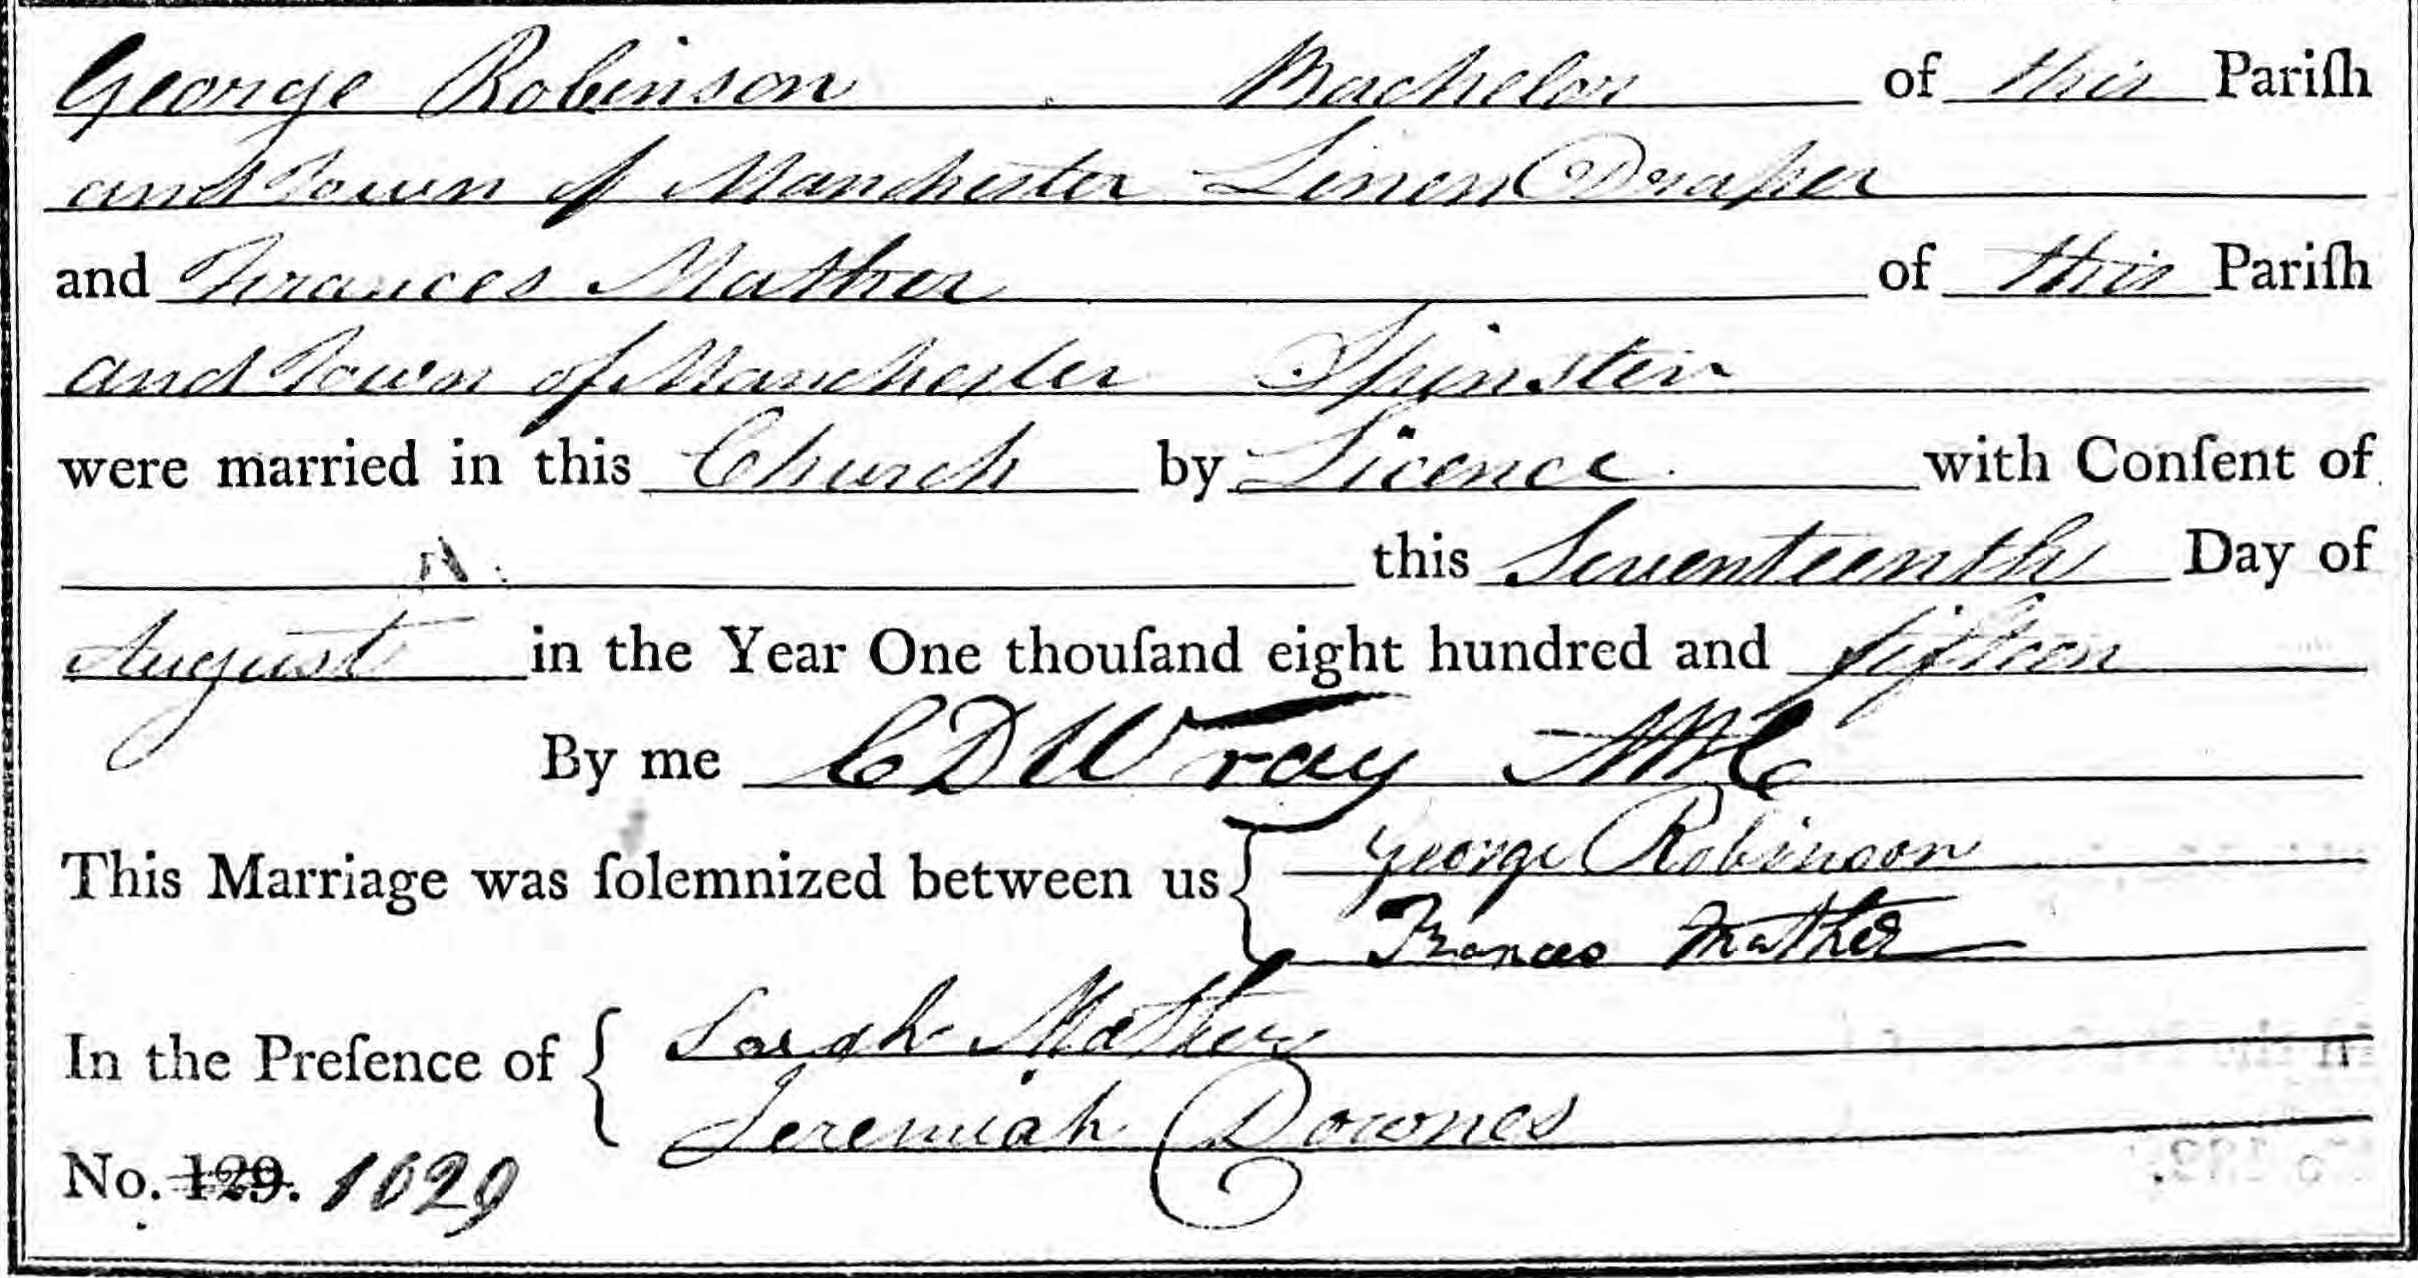 George Robinson Bachelor of this Pariſh
and Town of Manchester Linen Draper
and Frances Mather of this Pariſh
and Town of Manchester Spinster
were married in this Church by Licence with Conſent of
this Seventeenth Day of
August in the Year One thouſand eight hundred and fifteen
By me C D Wray
This Marriage was ſolemnized between us { George Robinson
Frances Mather
In the Preſence of { Sarah Mather
Jeremiah Downes
No. 129. 1029